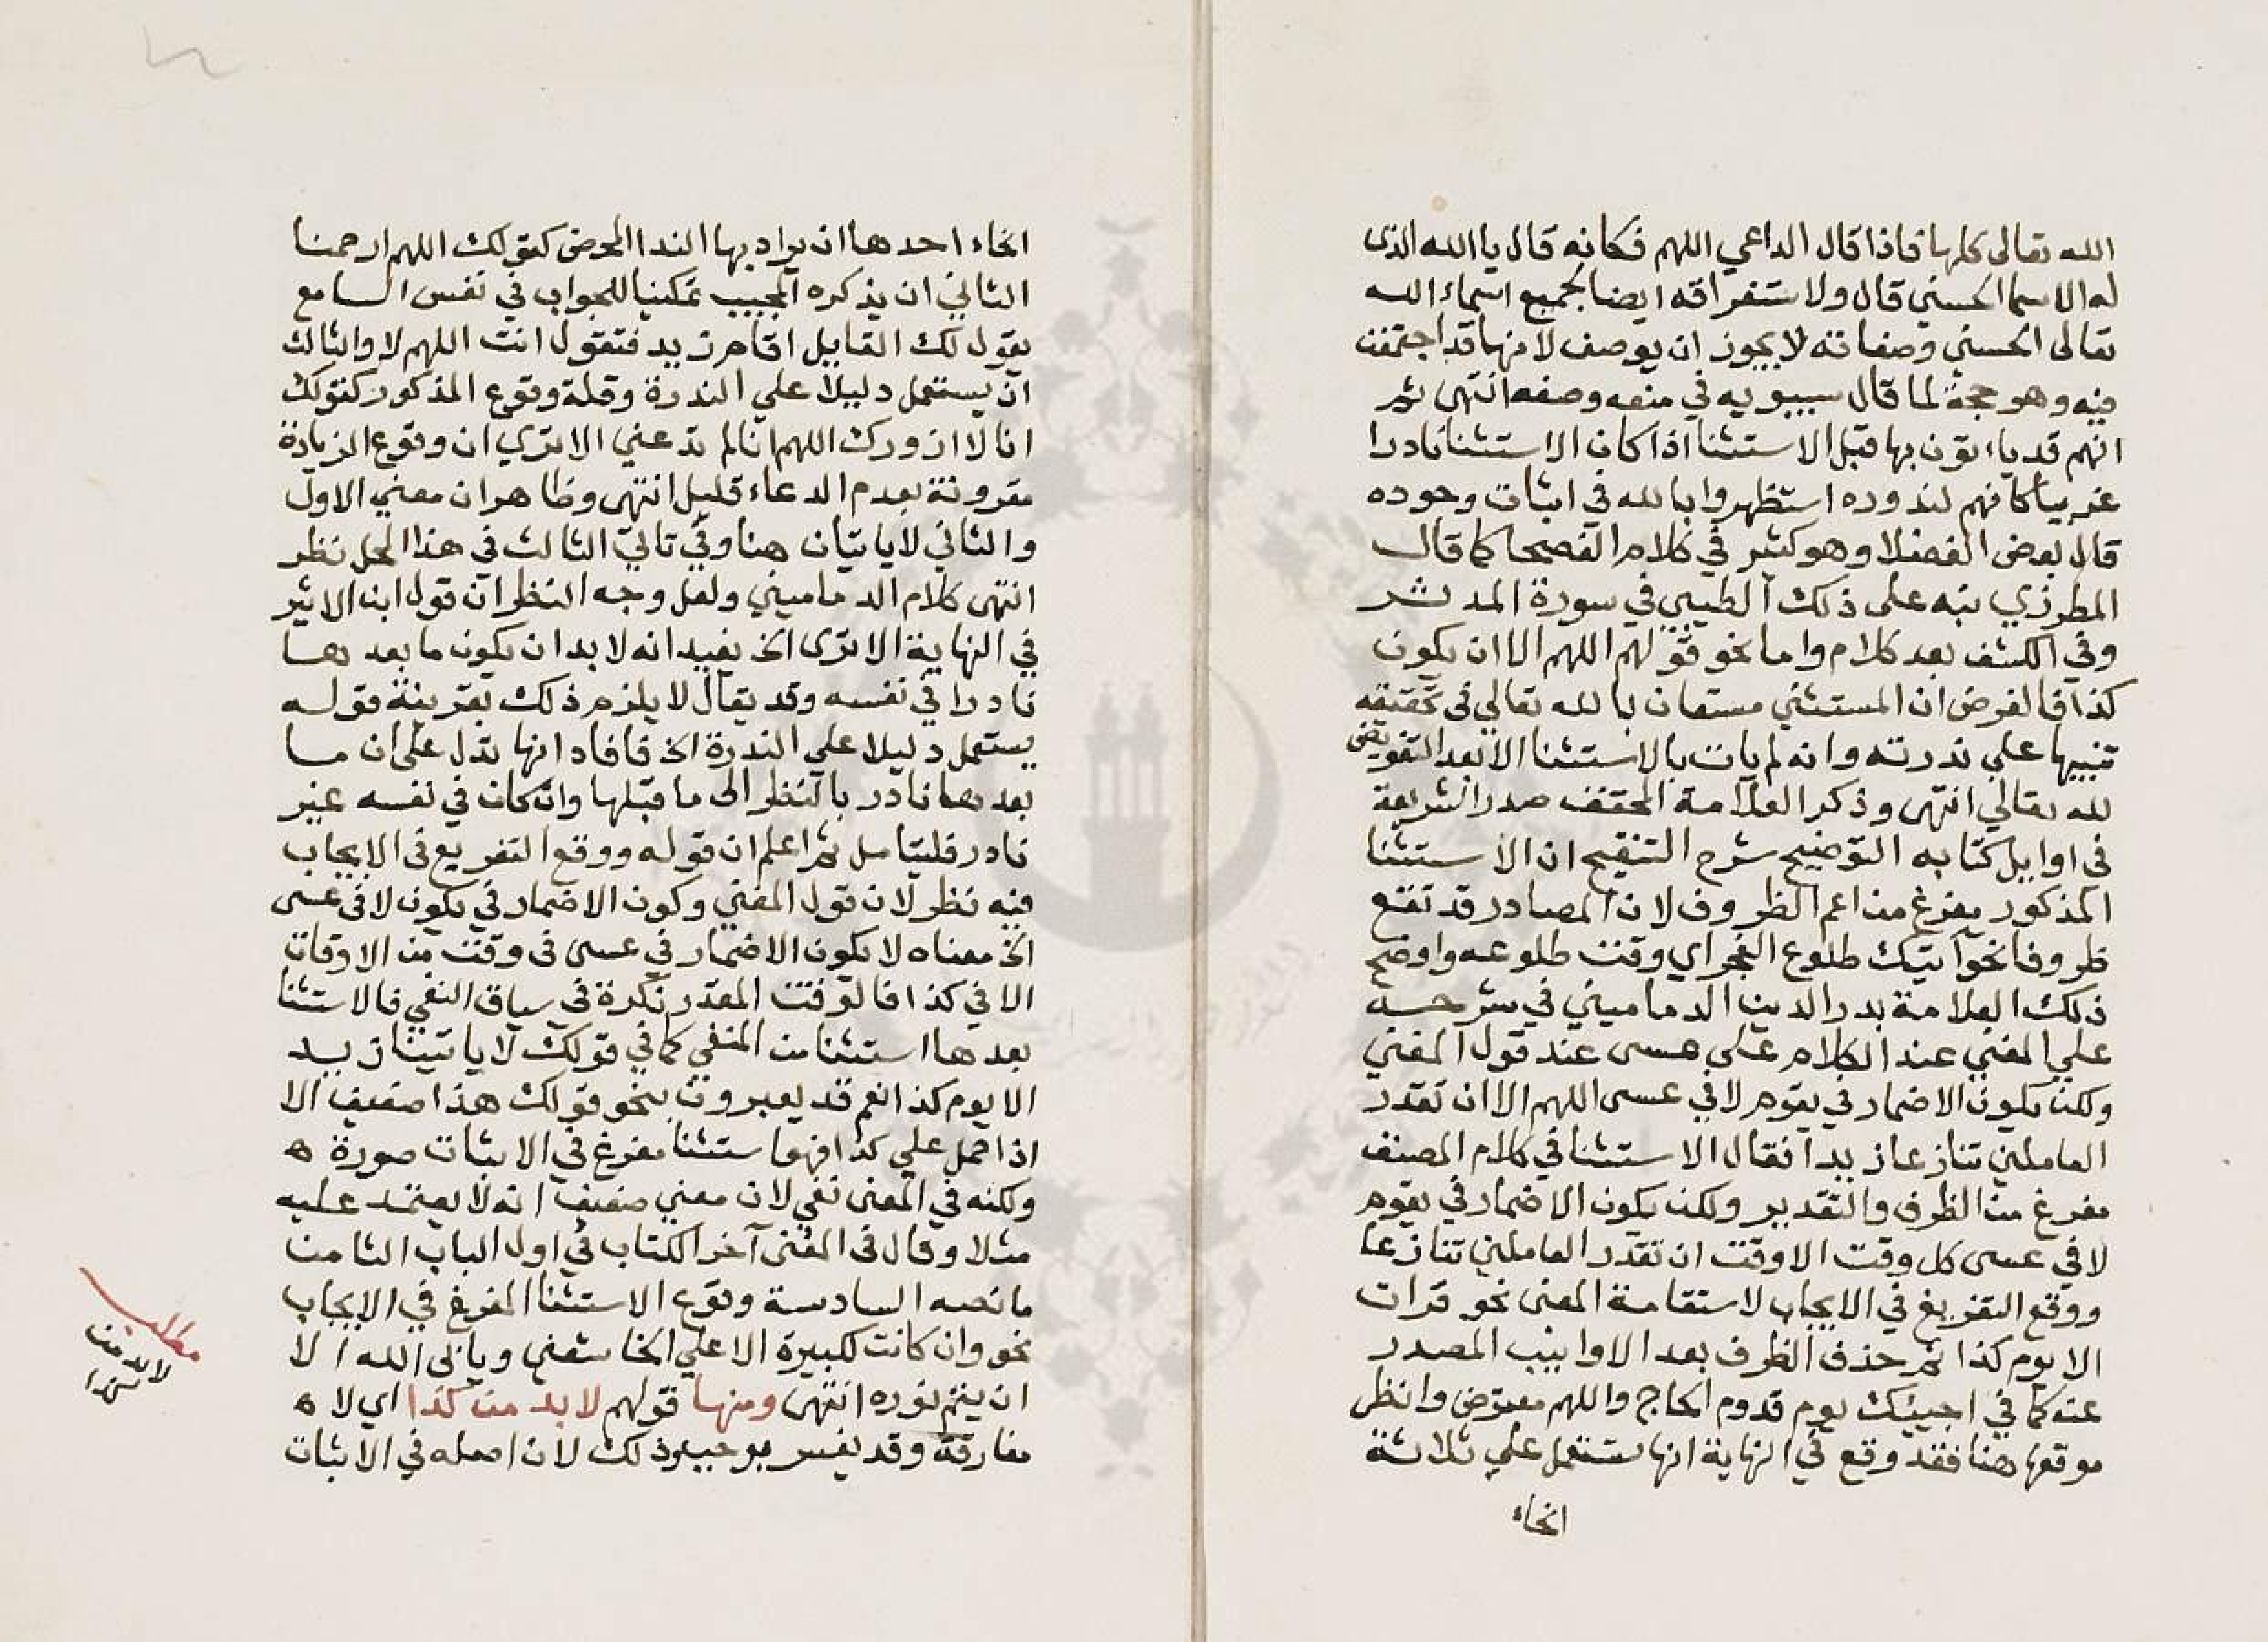 الله تعالى كلها فاذا قال الداعي اللهم فكانه قال يا الله الذى
له الاسما الحسنى قال ولاستغراقه ايضا لجميع اسماء الله
تعالى الحسنى وصفاته لا يجوز ان يوصف لانها قد اجتمعت
فيه وهو حجة لما قال سيبويه في منعه وصفه انتهى ثم
انهم قد ياءتون بها قبل الاستثنا اذا كان الاستثنا نادرا
غريبا كانهم لندوره استظهروا بالله في اثبات وجوده
قال بعض الفضلا وهو كثير في كلام الفصحا كما قال
المطرزي نبه على ذلك الطيبي في سورة المدثر
وفي الكشف بعد كلام واما نحو قولهم اللهم الا ان يكون
كذا فالغرض ان المستثنى مستعان بالله تعالي فى تحقيقه
تنبيها على ندرته وانه لم يات بالاستثنا الا بعد التفويض
لله تعالي انتهى وذكر العلامة المحقق صدر الشريعة
في اوايل كتابه التوضيح شرح التنقيح ان الاستثنا
المذكور مفرغ من اعم الظروف لان المصادر قد تقع
ظروفا نحو آتيك طلوع الفجر اي وقت طلوعه واوضح
ذلك العلامة بدر الدين الدماميني في شرحه
على المغني عند الكلام على عسى عند قول المغني
ولكن يكون الاضمار في يقوم لا في عسى اللهم الا ان تقدر
العاملين تنازعا زيدا فقال الاستثنا في كلام المصنف
مفرغ من الظرف والتقدير ولكن يكون الاضمار في يقوم
لا في عسى كل وقت الا وقت ان تقدر العاملين تنازعا
ووقع التفريغ في الايجاب لاستقامة المعنى نحو قرات
الا يوم كذا ثم حذف الظرف بعد الا وانيب المصدر
عنه كما في اجيئك يوم قدوم الحاج واللهم معترض وانظر
موقعها هنا فقد وقع في النهاية انها تستعمل على ثلاثة
انحاء
انحاء احدها ان يراد بها الندا المحض كقولك اللهم ارحمنا
الثاني ان يذكره المجيب تمكينا للجواب في نفس السامع
يقول لك القايل اقام زيد فتقول انت اللهم لا والثالث
ان يستعمل دليلا على الندرة وقلة وقوع المذكور كقولك
انا لا ازورك اللهم اذا لم تدعني الا ترى ان وقوع الزيارة
مقرونة بعدم الدعاء قليل انتهى وظاهر ان معنى الاول
والثاني لا ياتيان هنا وفي تاتي الثالث في هذا المحل نظر
انتهى كلام الدماميني ولعل وجه النظر ان قول ابن الاثير
في النهاية الا ترى الخ يفيد انه لا بد ان يكون ما بعدها
نادرا في نفسه وقد يقال لا يلزم ذلك بقرينة قوله
يستعمل دليلا على الندرة الخ فافاد انها تدل على ان ما
بعدها نادر بالنظر الى ما قبلها وان كان في نفسه غير
نادر فليتامل ثم اعلم ان قوله ووقع التفريع فى الايجاب
فيه نظر لان قول المغني وكون الاضمار في يكون لا في عسى
الخ معناه لا يكون الاضمار في عسى فى وقت من الاوقات
الا في كذا فالوقت المقدر نكرة في سياق النفي فالاستثنا
بعدها استثنا من المنفي كما في قولك لا ياتينا زيد
الا يوم كذا نعم قد يعبرون بنحو قولك هذا ضعيف الا
اذا حمل على كذا فهو استثنا مفرغ في الاثبات صورة ه
ولكنه في المعنى نفي لان معنى ضعيف انه لا يعتمد عليه
مثلا وقال فى المغنى آخر الكتاب في اول الباب الثامن
ما نصه السادسة وقوع الاستثنا المفرغ في الايجاب
نحو وان كانت لكبيرة الا على الخاشعين ويابى الله الا
ان يتم نوره انتهى ومنها قولهم لا بد من كذا اي لا ه
مفارقة وقد يفسر بوجب وذلك لان اصله في الاثبات
مطلب
لا بد من
كذا